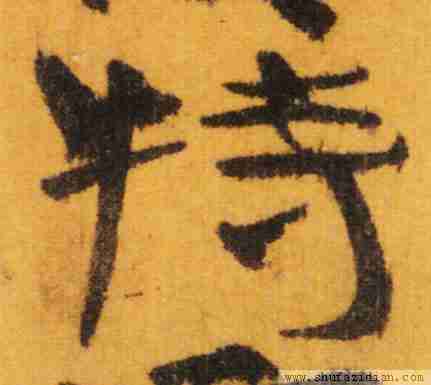 特
www.shufazidian.com